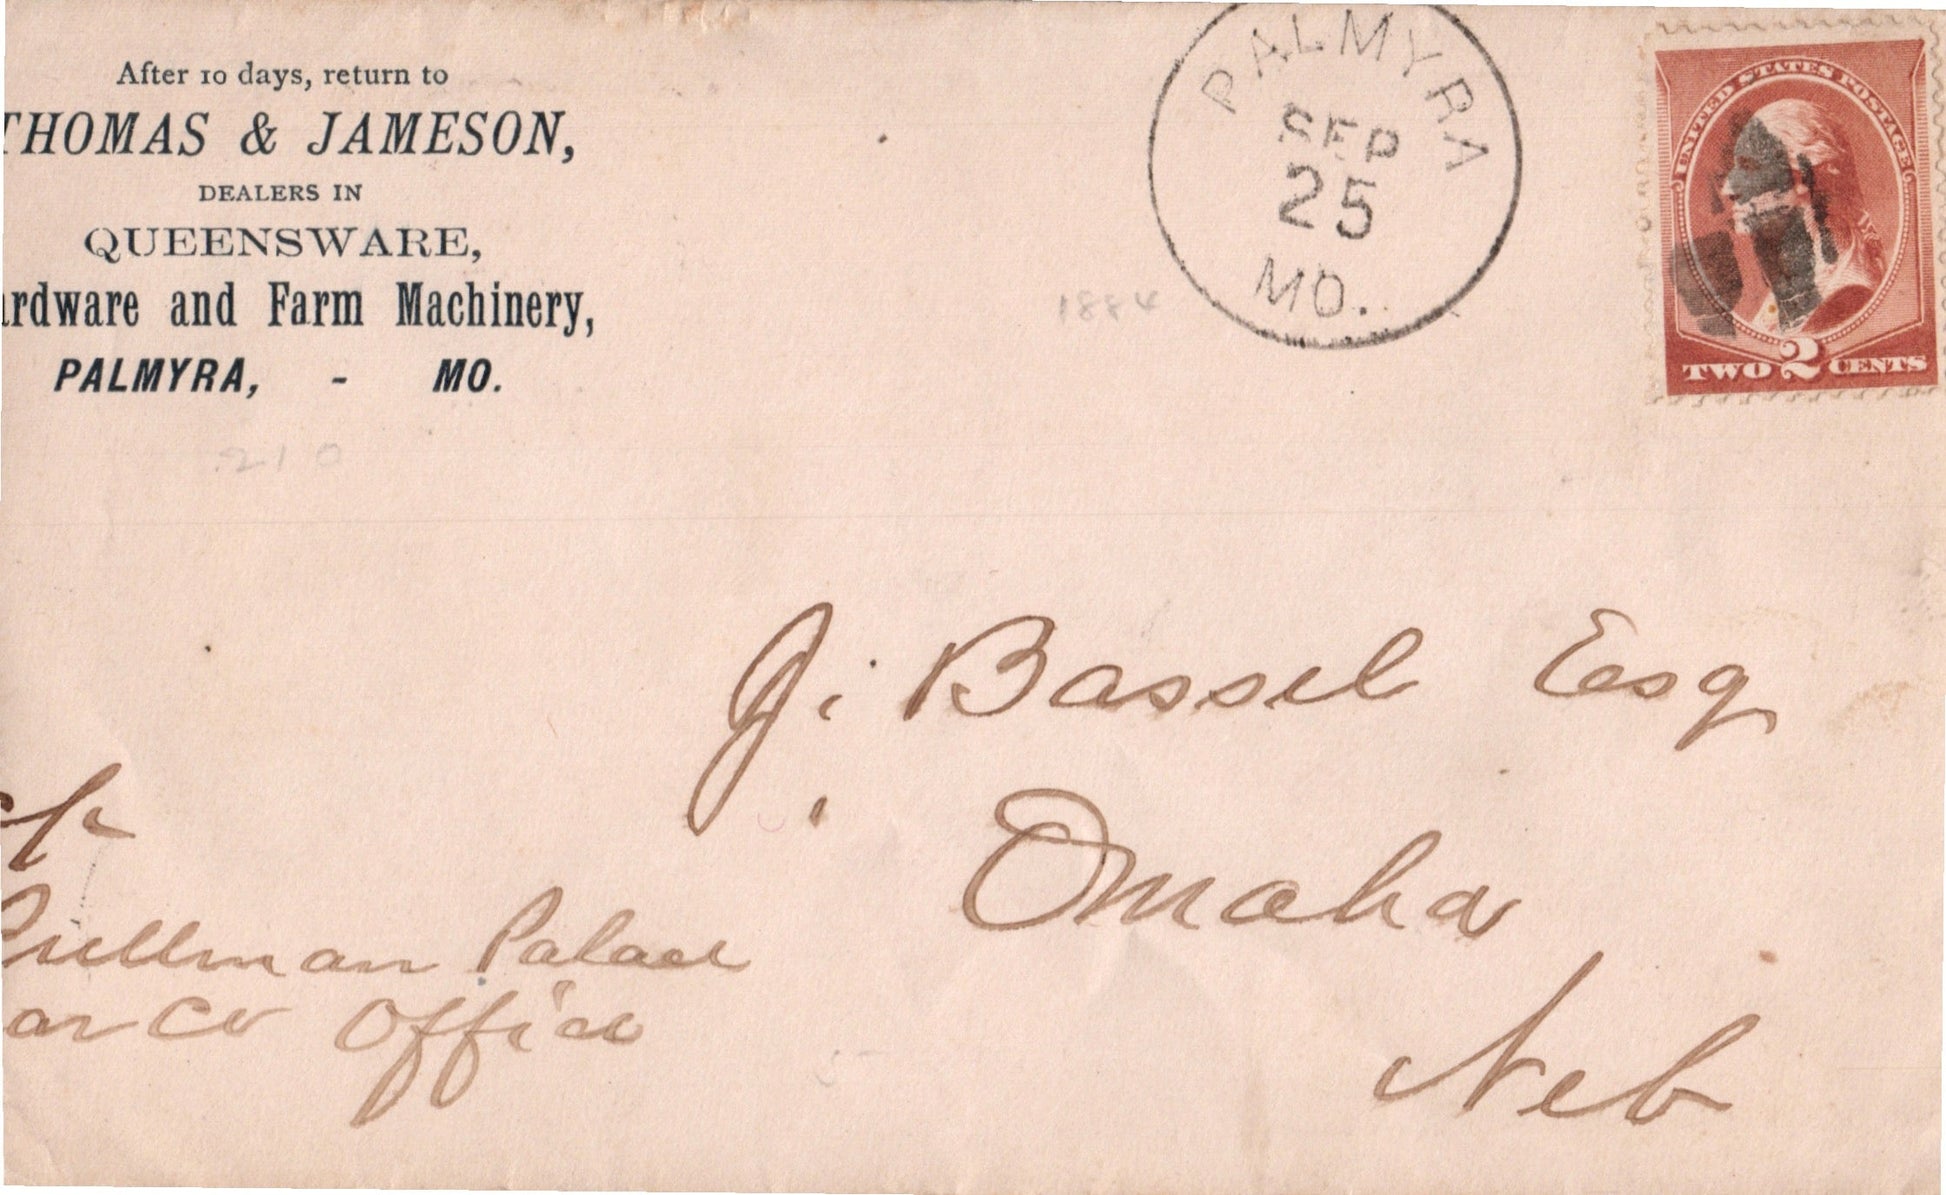 After 10 days, return to
THOMAS & JAMESON,
DEALERS IN
QUEENSWARE,
ardware and Farm Machinery,
PALMYRA, - MO.
210
PALMYRA
SEP
25
MO.
1884
UNITED STATES POSTAGE
TWO 2 CENTS
J. Bassel Esq
Omaha
Neb
Pullman Palace
ar Co Office